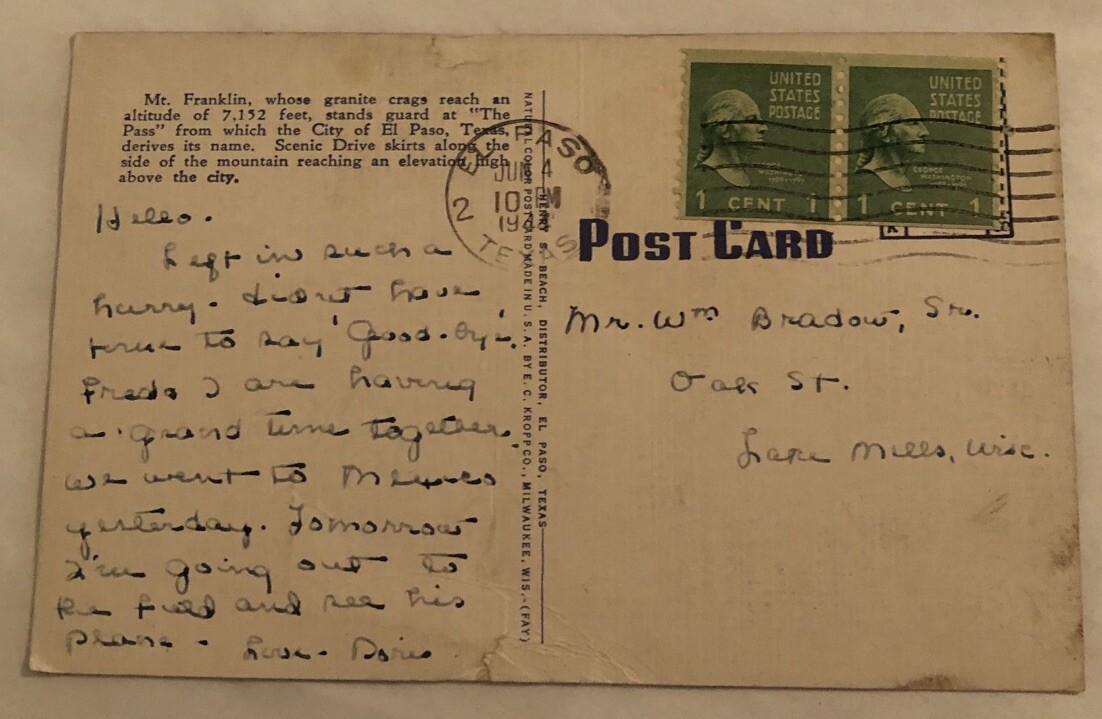 Mt. Franklin, whose granite crags reach an
altitude of 7,152 feet, stands guard at "The
Pass" from which the City of El Paso, Texas,
derives its name. Scenic Drive skirts along the
side of the mountain reaching an elevation high
above the city.
Hello.
Left in such a
hurry. didn't have
time to say Good-bye.
Freds I are having
a grand time together,
we went to Mexico
yesterday. Tomorrow
I'm going out to
the field and see his
plane -
Love - Doris
NATURAL COLOR POST CARD MADE IN U. S. A. BY E. C. KROPP CO., MILWAUKEE, WIS.-(FAY)
HENRY S. BEACH, DISTRIBUTOR, EL PASO, TEXAS
EL PASO
JUN 4
10
2
TEXAS
UNITED
STATES
POSTAGE
GEORGE
WASHINGTON
1 CENT 1
UNITED
STATES
POSTAGE
GEORGE
WASHINGTON
1 CENT 1
POST CARD
Mr. Wm Bradow, Sr.
Oak St.
Lake Mills, Wisc.